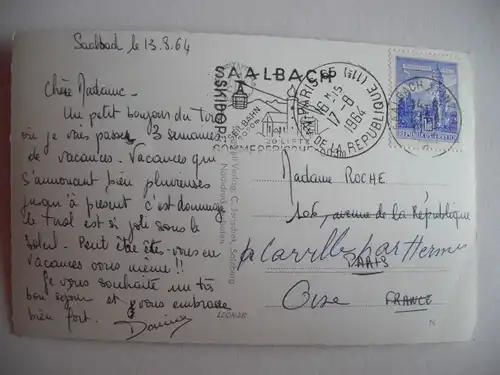 Saalbach le 13.8.64
Chère Madame
Un petit bonjour du Tirol
où je vais passer 3 semaines
de vacances. Vacances qui
s'annoncent bien pluvieuses
jusqu'à présent c'est dommage
le tirol est si joli sous le
soleil. Peut être êtes-vous en
vacances vous même !!
Je vous souhaite un très
bon séjour et vous embrasse
bien fort.
SAALBACH
SKIDORF
20 LIFTE
SOMMERFRISCHE
PARIS 55 (11E)
16H-5
17-8
1964
DE LA REPUBLIQUE
Madame ROCHE
106, avenue de la République
PARIS
lacarville par Hermes
Oise
FRANCE
N